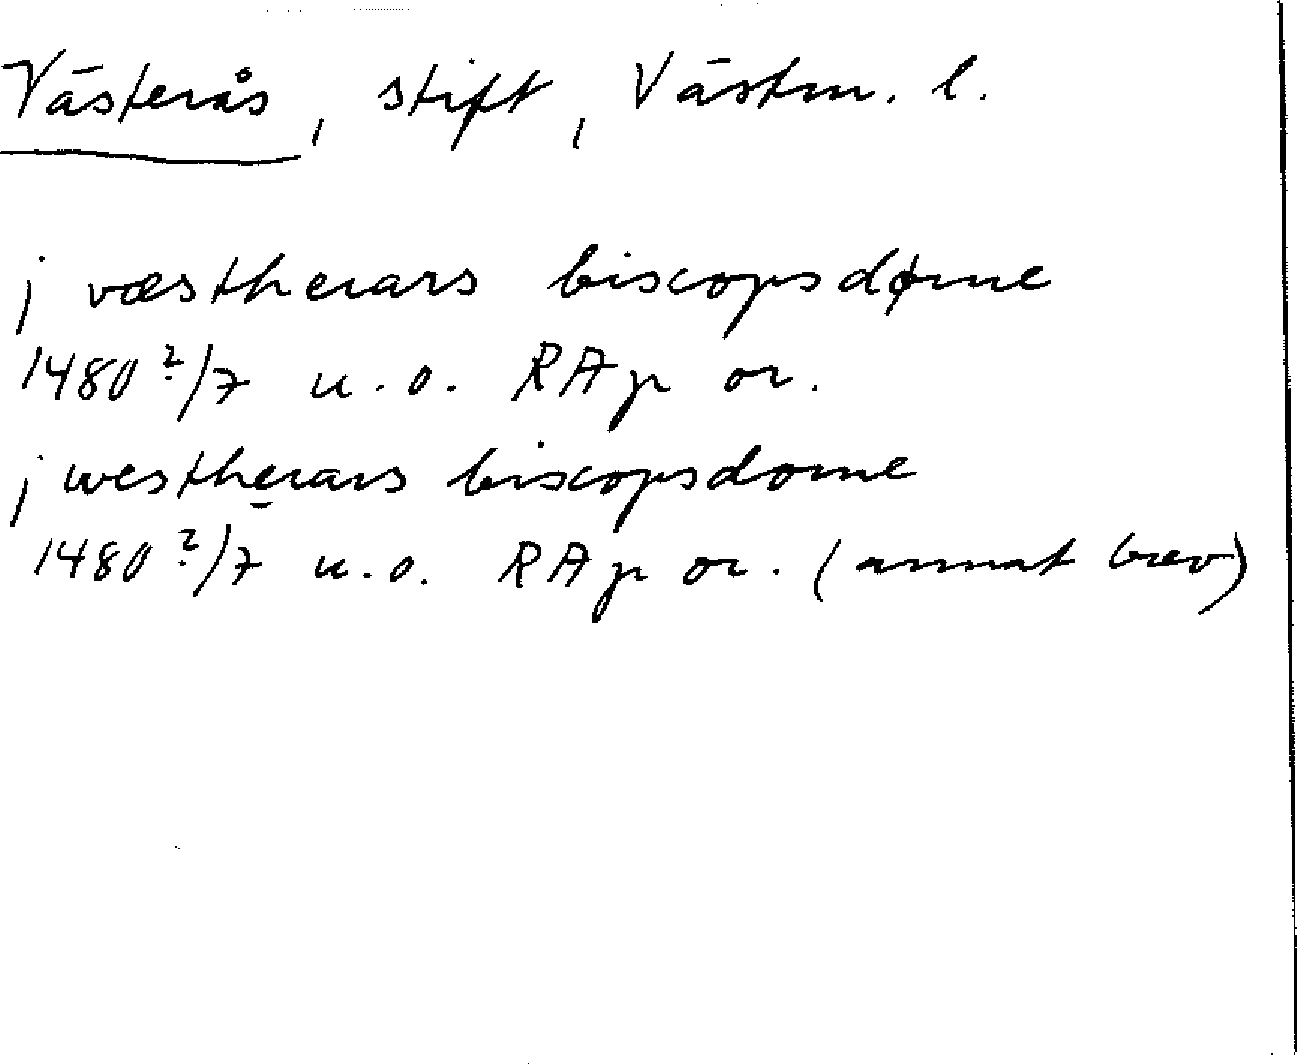 Västerås, stift, Västm. l.
j væstherars biscopsdøme
1480 2/7 u.o. RAp or.
j westherars biscopsdome
1480 2/7 u.o. RAp or. (annat brev)